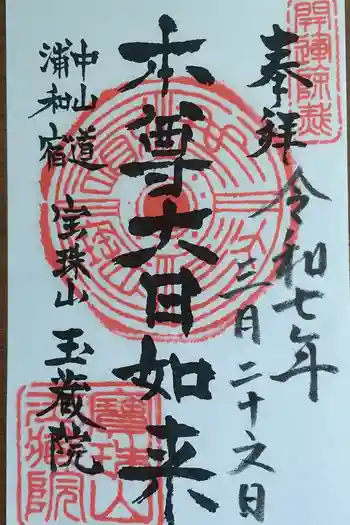 開運厄除
奉拝
令和七年
三月二十六日
本尊大日如来
中山道
浦和宿
宝珠山
玉蔵院
寶珠山
玉蔵院